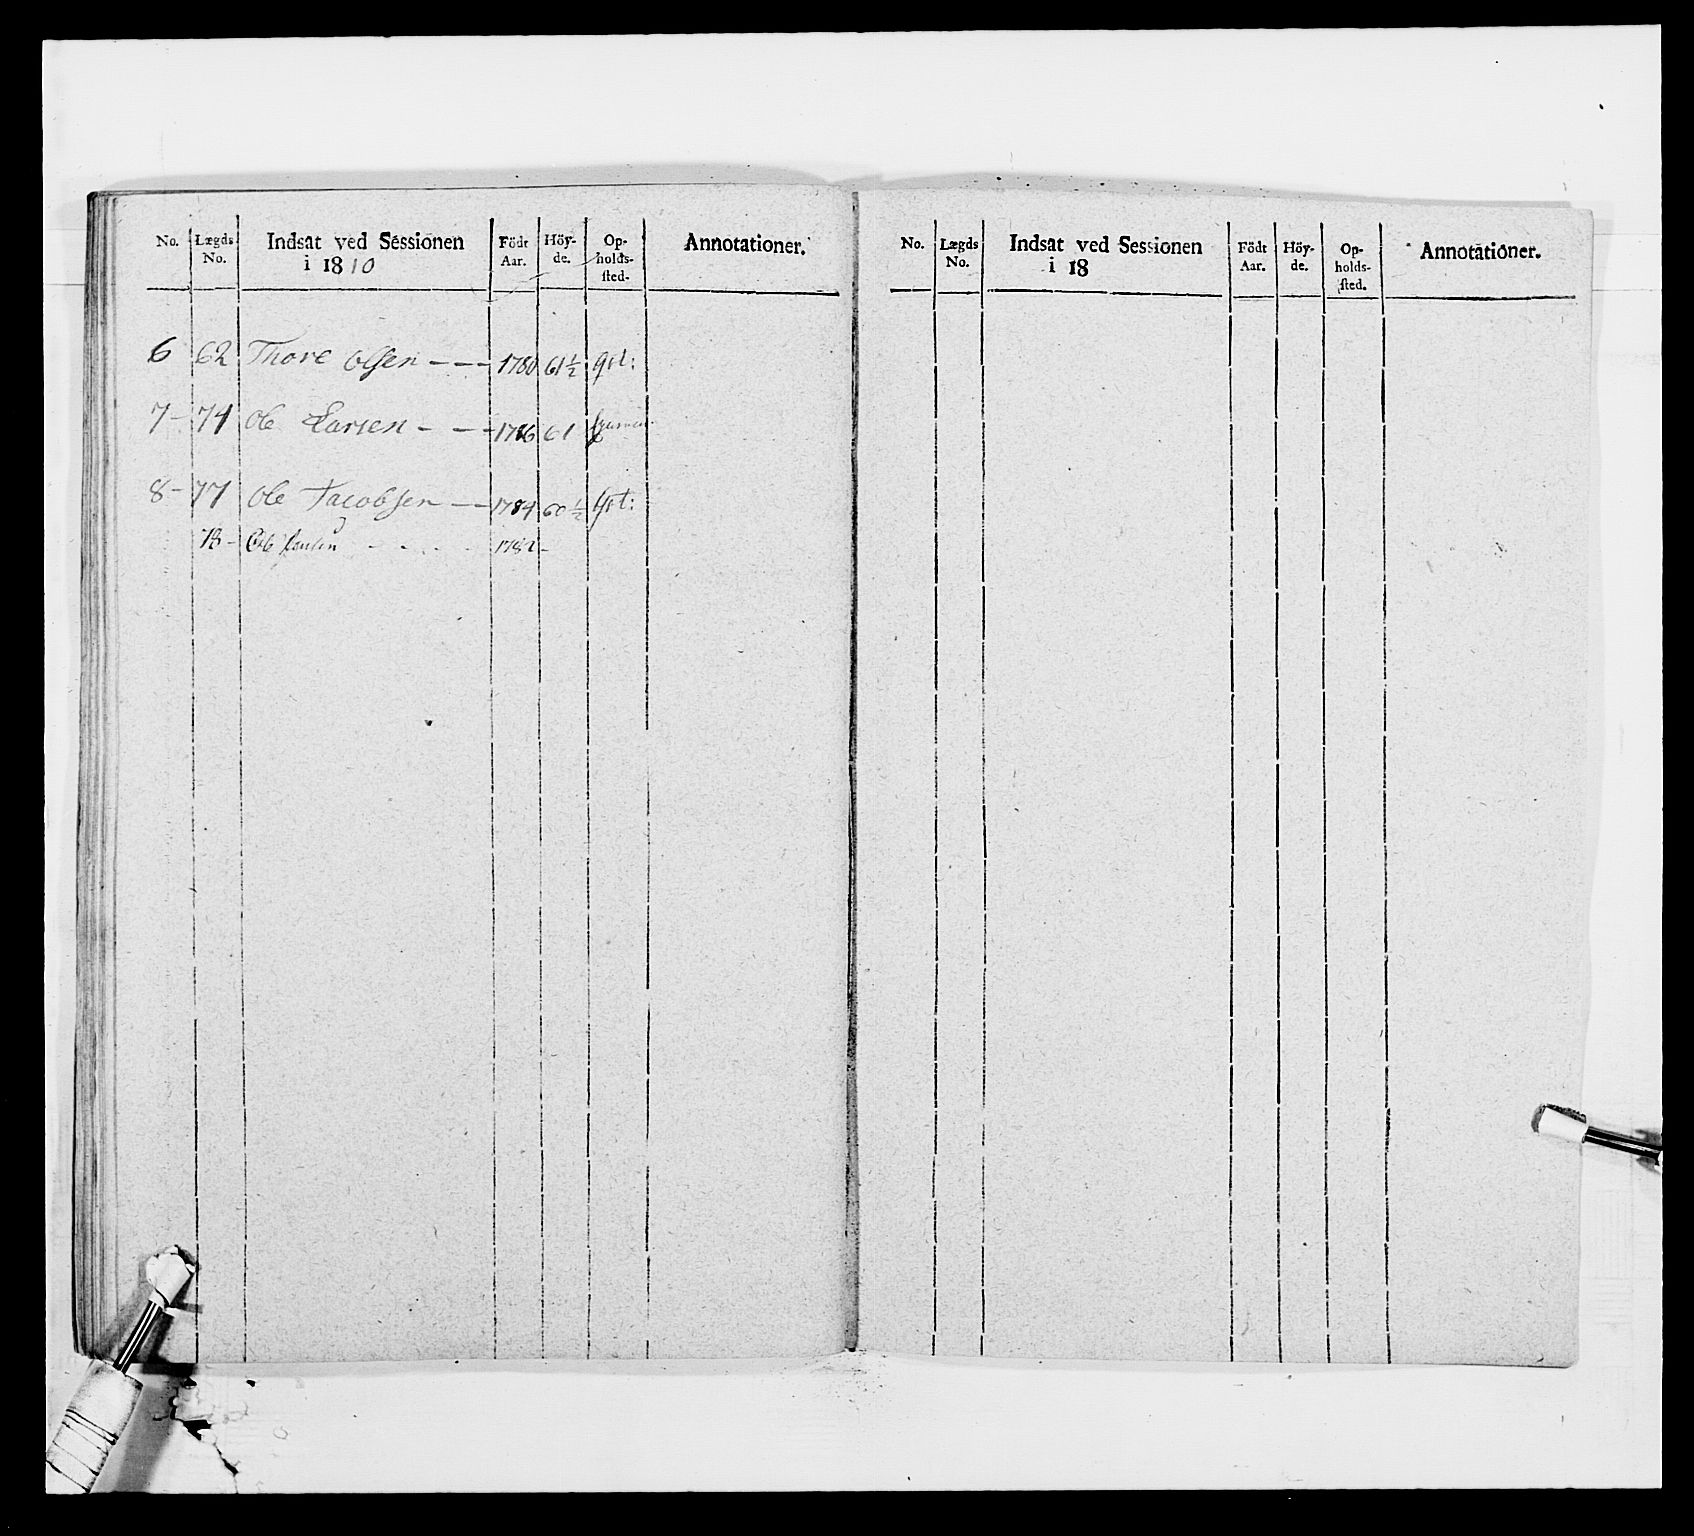 No. Lægds No. Indsat ved Sessionen i 1810 Födt Aar. Höy-de. Op-holds-sted. Annotationer.
6 62 Thore Olsen - - - 1780 61 1/2 
7 - 74 Ole Larsen - - - 1786 61
8 - 77 Ole Jacobsen - - 1784 60 1/2
78 - Ole - - - - 1782 -
No. Lægds No. Indsat ved Sessionen i 18 Födt Aar. Höy-de. Op-holds-sted. Annotationer.